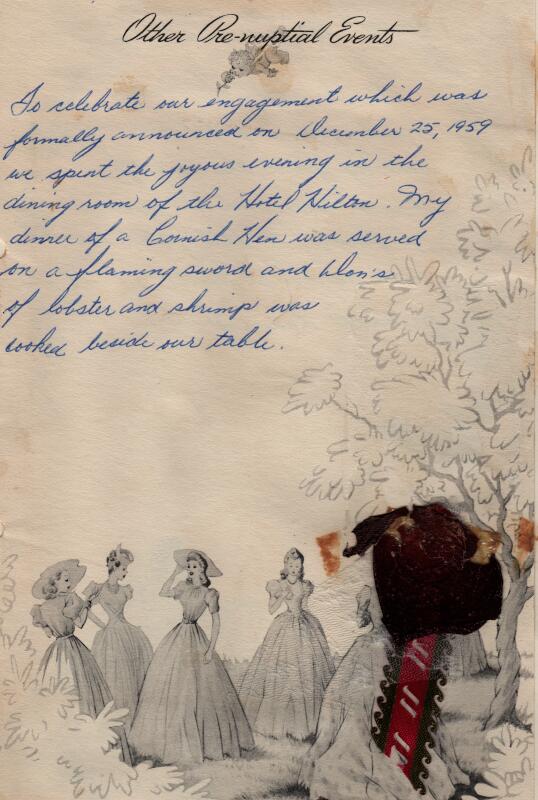 Other Pre-nuptial Events
To celebrate our engagement which was
formally announced on December 25, 1959
we spent the joyous evening in the
dining room of the Hotel Hilton. My
dinner of a Cornish Hen was served
on a flaming sword and Don's
of lobster and shrimp was
cooked beside our table.